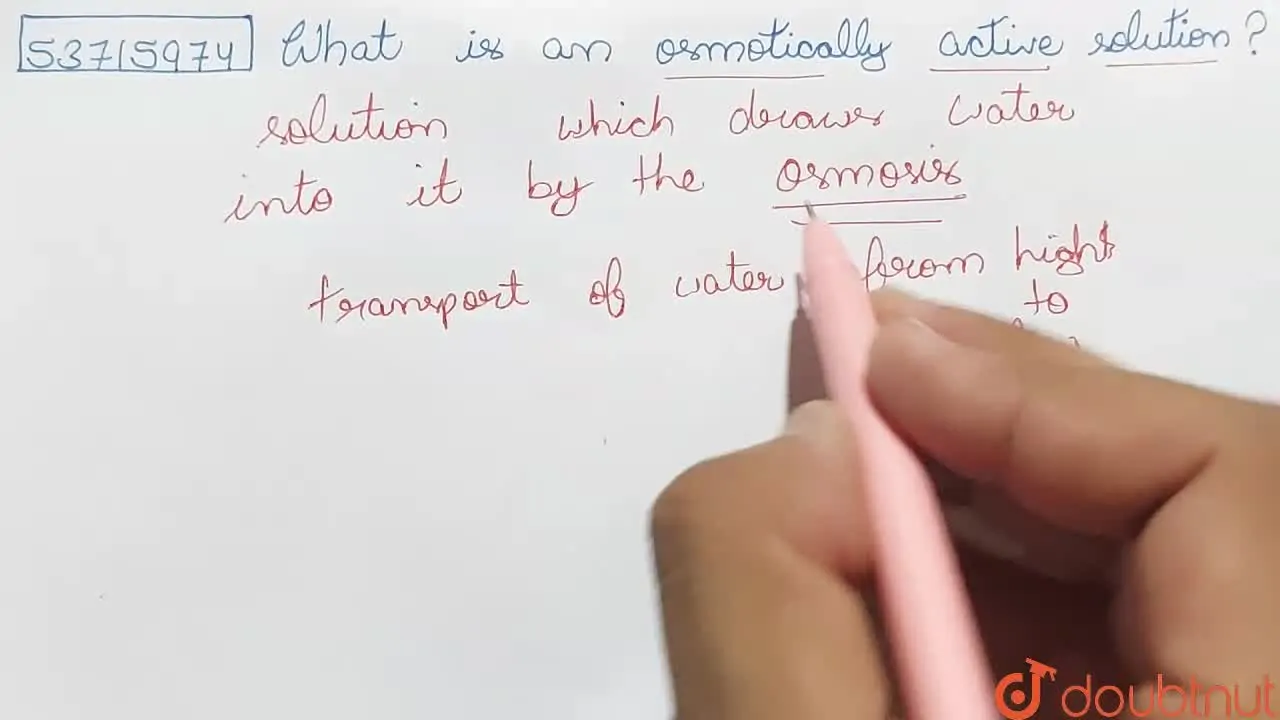 53715974 What is an osmotically active solution?
solution which draws water
into it by the osmosis
transport of water from high
to
doubtnut